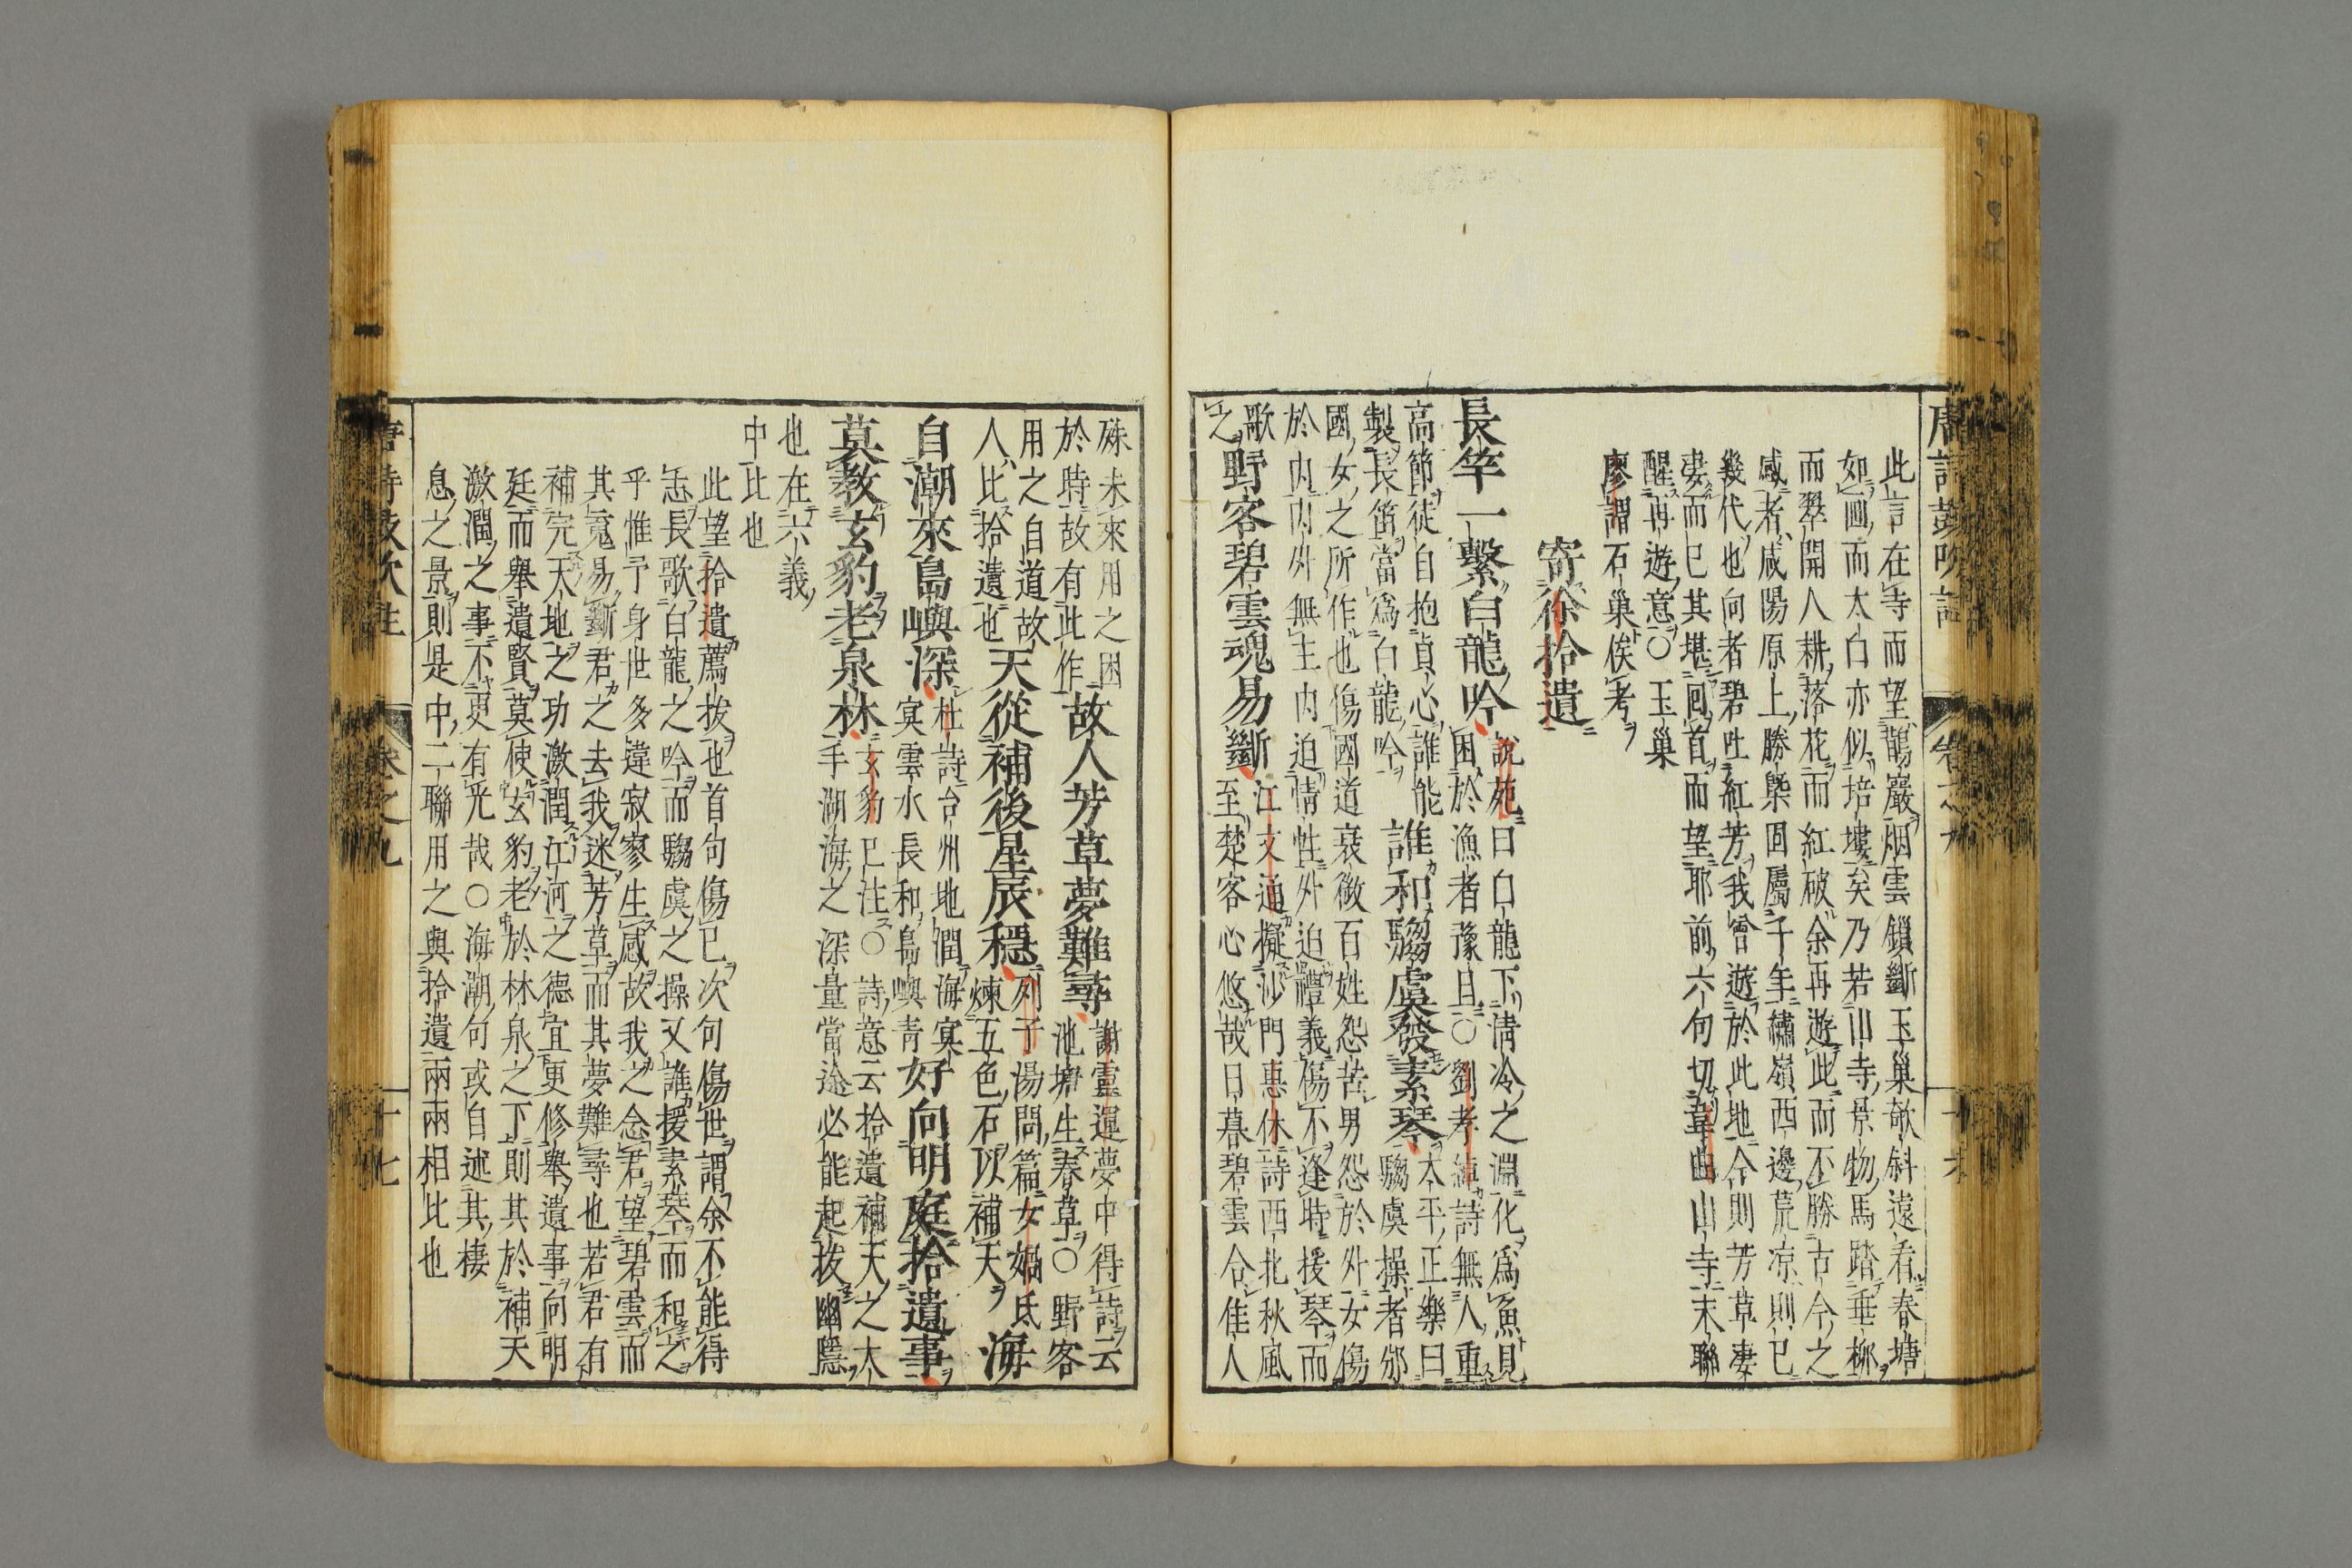 此言在寺而望鵲巖烟雲鎖斷玉巢欹斜遠看春塘
如画而太白亦似培塿矣乃若山寺景物馬踏垂柳
而翠開人耕落花而紅破余再遊此而不勝古今之
感者咸陽原上勝槩固屬千年繡嶺西邊荒凉則已
幾代也向者碧吐紅芳我曾遊於此地今則芳草凄
凄而已其堪回首而望耶前六句切韋曲山寺末聯
醒再遊意〇玉巢
廖謂石巢俟考
寄徐拾遺
長竿一繫白龍吟
說苑曰白龍下清冷之淵化爲魚見
困於漁者豫且〇劉孝綽詩無人重
高節徒自抱貞心誰能
製長笛當爲白龍吟
誰和騶虞發素琴
太平正樂曰
騶虞操者邠
國女之所作也傷國道衰微百姓怨苦男怨於外女傷
於內內外無主內迫情性外迫禮義傷不逢時援琴而
歌
之
野客碧雲魂易斷
江文通擬沙門惠休詩西北秋風
至楚客心悠哉日暮碧雲合佳人
殊未來用之困
於時故有此作
故人芳草夢難尋
謝靈運夢中得詩云
池塘生春草〇野客
用之自道故
人比拾遺也
天從補後星辰穩
列子湯問篇女媧氏
煉五色石以補天
海
自潮來島嶼深
杜詩台州地濶海冥
冥雲水長和島嶼青
好向明庭拾遺事
莫教玄豹老泉林
玄豹已注〇詩意云拾遺補天之大
手湖海之深量當途必能起拔幽隱
也在六義
中比也
此望拾遺薦拔也首句傷已次句傷世謂余不能得
志長歌白龍之吟而騶虞之操又誰援素琴而和之
乎惟予身世多違寂寥生感故我之念君望碧雲而
其魂易斷君之去我迷芳草而其夢難尋也若君有
補完天地之功激潤江河之德宜更修舉遺事向明
廷而舉遺賢莫使玄豹老於林泉之下則其於補天
激潤之事不更有光哉〇海潮句或自述其棲
息之景則是中二聯用之與拾遺兩兩相比也
唐詩鼓吹註
卷之九
十七